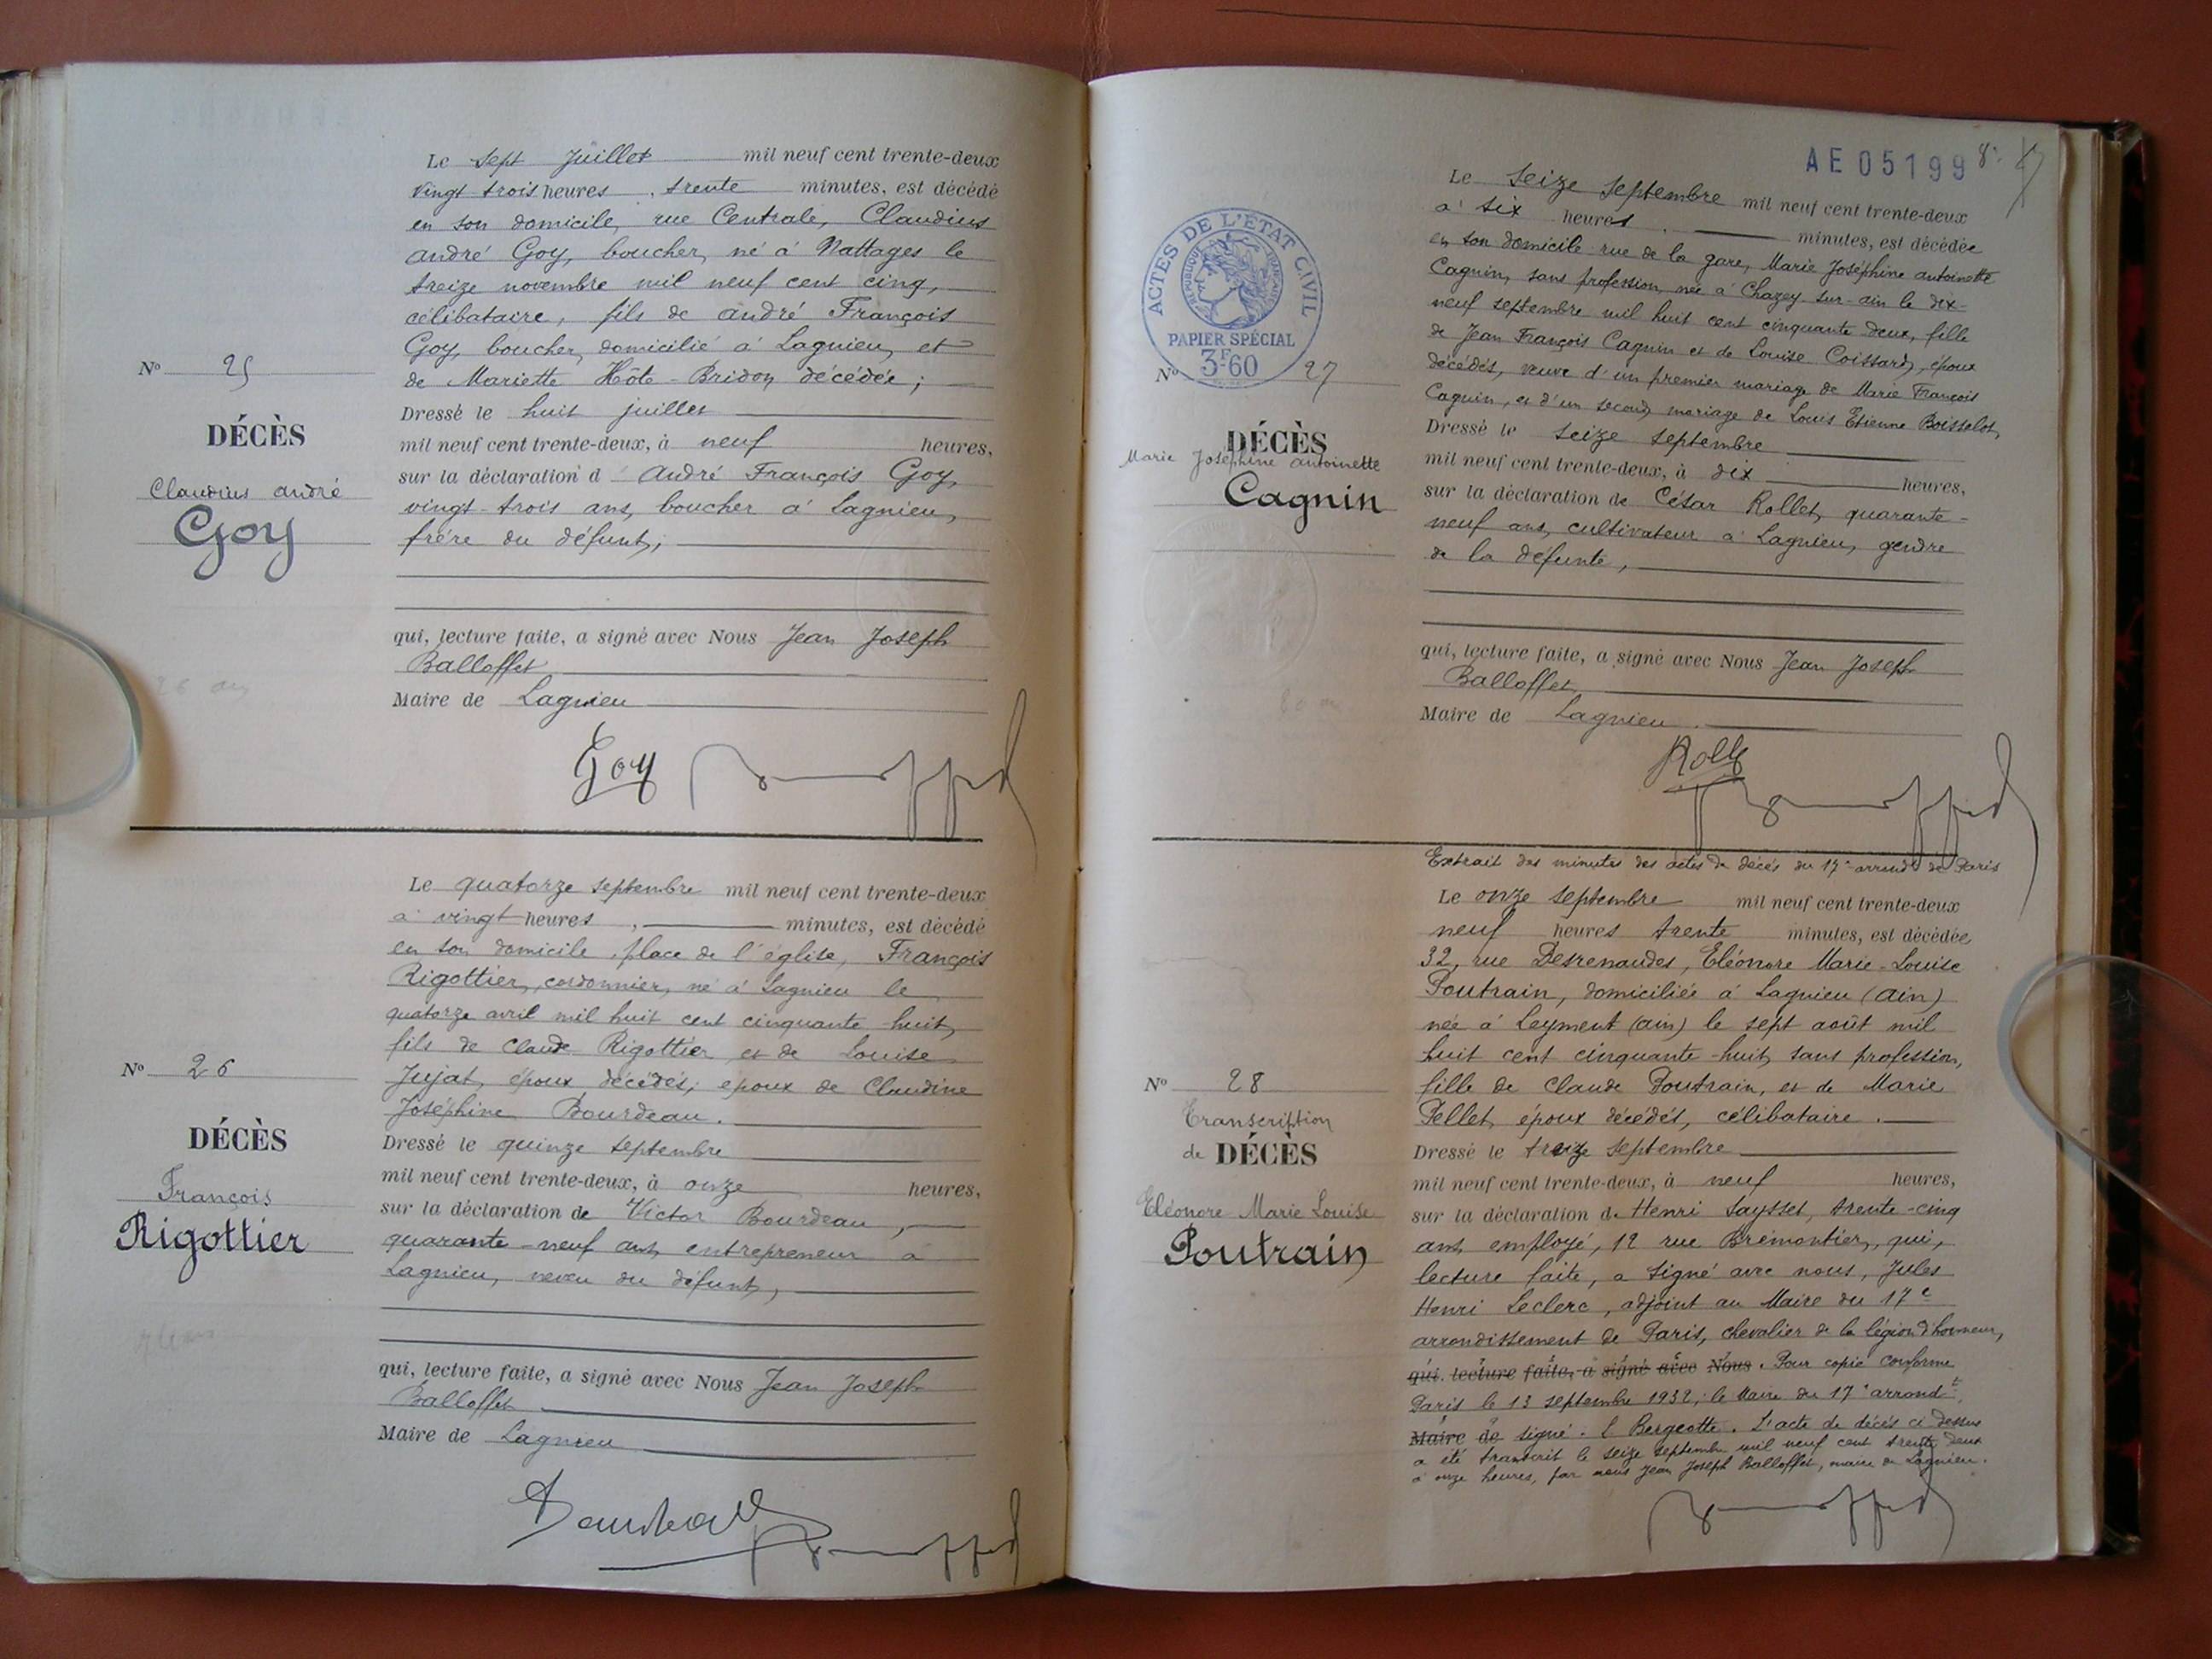 Le sept juillet mil neuf cent trente-deux
vingt trois heures, trente minutes, est décédé
en son domicile, rue Centrale, Claudius
andré Goy, boucher, né à Nattages le
treize novembre mil neuf cent cinq,
célibataire, fils de andré François
Goy, boucher, domicilié à Lagnieu, et
de Mariette Hôte-Bridon décédée;
Dressé le huit juillet
mil neuf cent trente-deux, à neuf heures,
sur la déclaration d André François Goy,
vingt-trois ans, boucher à Lagnieu,
frère du défunt,
qui, lecture faite, a signé avec Nous Jean Joseph
Balloffet
Maire de Lagnieu
Goy
No 25
DÉCÈS
Claudius andré
Goy
Le quatorze septembre mil neuf cent trente-deux
à vingt heures, minutes, est décédé
en son domicile, place de l'église, François
Rigottier, cordonnier, né à Lagnieu le
quatorze avril mil huit cent cinquante-huit,
fils de Claude Rigottier et de Louise
Jujat, époux décédés; époux de Claudine
Joséphine Bourdeau.
Dressé le quinze septembre
mil neuf cent trente-deux, à onze heures,
sur la déclaration de Victor Bourdeau,
quarante-neuf ans, entrepreneur à
Lagnieu, neveu du défunt,
qui, lecture faite, a signé avec Nous Jean Joseph
Balloffet
Maire de Lagnieu
No 26
DÉCÈS
François
Rigottier
AE 05199
ACTES DE L'ÉTAT CIVIL
RÉPUBLIQUE FRANÇAISE
PAPIER SPÉCIAL
3F60
Le seize septembre mil neuf cent trente-deux
à six heures minutes, est décédée
en son domicile rue de la gare, Marie Joséphine antoinette
Cagnin, sans profession, née à Chazey-sur-ain le dix-
neuf septembre mil huit cent cinquante deux, fille
de Jean François Cagnin et de Louise Coissard, époux
décédés, veuve d'un premier mariage de Marie François
Cagnin, et d'un second mariage de Louis Etienne Boisselot,
Dressé le seize septembre
mil neuf cent trente-deux, à dix heures,
sur la déclaration de César Rollet, quarante-
neuf ans, cultivateur à Lagnieu, gendre
de la défunte,
qui, lecture faite, a signé avec Nous Jean Joseph
Balloffet,
Maire de Lagnieu.
No 27
DÉCÈS
Marie Joséphine antoinette
Cagnin
Extrait des minutes des actes de décès du 17e arrondt de Paris
Le onze septembre mil neuf cent trente-deux
neuf heures trente minutes, est décédée
32, rue Desrenaudes, Eléonore Marie-Louise
Poutrain, domiciliée à Lagnieu (ain)
née à Leyment (ain) le sept août mil
huit cent cinquante-huit, sans profession,
fille de Claude Poutrain, et de Marie
Pellet, époux décédés, célibataire.
Dressé le treize septembre
mil neuf cent trente-deux, à neuf heures,
sur la déclaration de Henri Saysset, trente-cinq
ans, employé, 12 rue Brémontier, qui,
lecture faite, a signé avec nous, Jules
Henri Leclerc, adjoint au Maire du 17e
arrondissement de Paris, chevalier de la légion d'honneur,
qui, lecture faite, a signé avec Nous. Pour copie conforme
Paris le 13 septembre 1932; le Maire du 17e arrondt.
Maire de signé: l Bergeotte. L'acte de décès ci dessus
a été transcrit le seize septembre mil neuf cent trente deux
à onze heures, par nous Jean Joseph Balloffet, maire de Lagnieu.
No 28
Transcription
de DÉCÈS
Eléonore Marie Louise
Poutrain